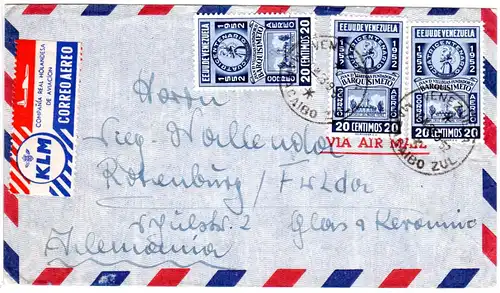 COMPAÑIA REAL HOLANDESA
DE AVIACION
CORREO AEREO
KLM
EE.UU. DE VENEZUELA
1552 1952
CUATRICENTENARIO
BARQUISIMETO
CORREO AEREO
20 CENTIMOS
EE.UU. DE VENEZUELA
1552 1952
CUATRICENTENARIO
BARQUISIMETO
CORREO AEREO
20 CENTIMOS
EE.UU. DE VENEZUELA
1552 1952
CUATRICENTENARIO
BARQUISIMETO
CORREO AEREO
20 CENTIMOS
VIA AIR MAIL
Herrn
Rotenburg / Fulda
Schulstr. 2 Glas & Keramik
Alemania